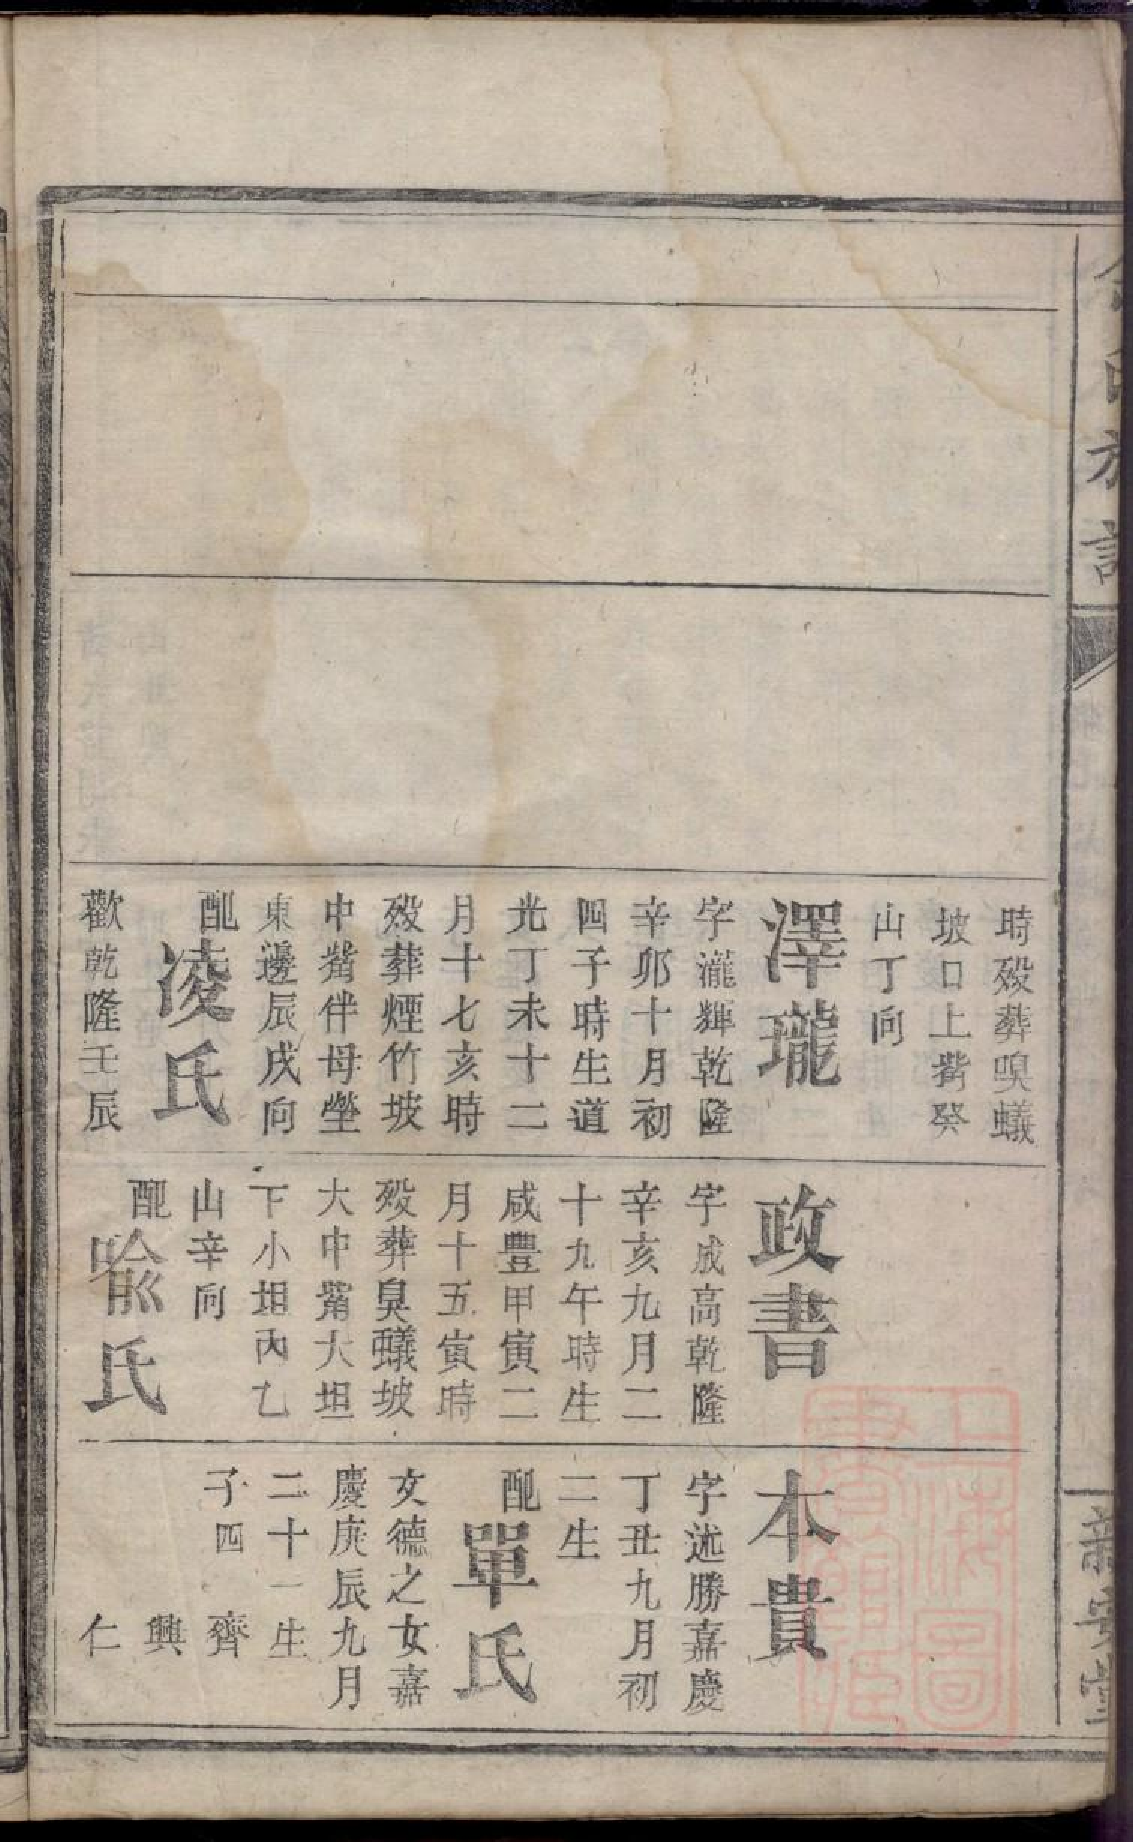 時歿葬嗅蟻
坡口上嘴癸
山丁向
澤瓏
字瀧輝乾隆
辛卯十月初
四子時生道
光丁未十二
月十七亥時
歿葬煙竹坡
中嘴伴母塋
東邊辰戌向
配凌氏
歡乾隆壬辰
政書
字成高乾隆
辛亥九月二
十九午時生
咸豐甲寅二
月十五寅時
歿葬臭蟻坡
大中嘴大坦
下小坦內乙
山辛向
配喻氏
本貴
字述勝嘉慶
丁丑九月初
二生
配單氏
文德之女嘉
慶庚辰九月
二十一生
子四 齊
興
仁
氏族譜
新安堂